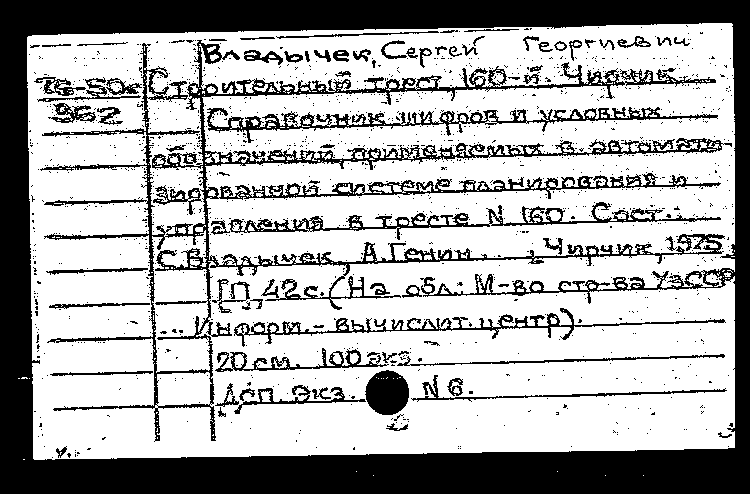 Владычек, Сергей Георгиевич
Строительный трест, 160-й. Чирчик
962 Справочник шифров и условных
обозначений, применяемых в автомати-
зированной системе планирования и
управления в тресте N 160. Сост.:
С. Владычек, А. Генин... Чирчик, 1975,
[1], 42 с. (На обл.: М-во стр-ва УзССР
... Информ.-вычислит. центр).
20 см. 100 экз.
ДСП. Экз. N 6.